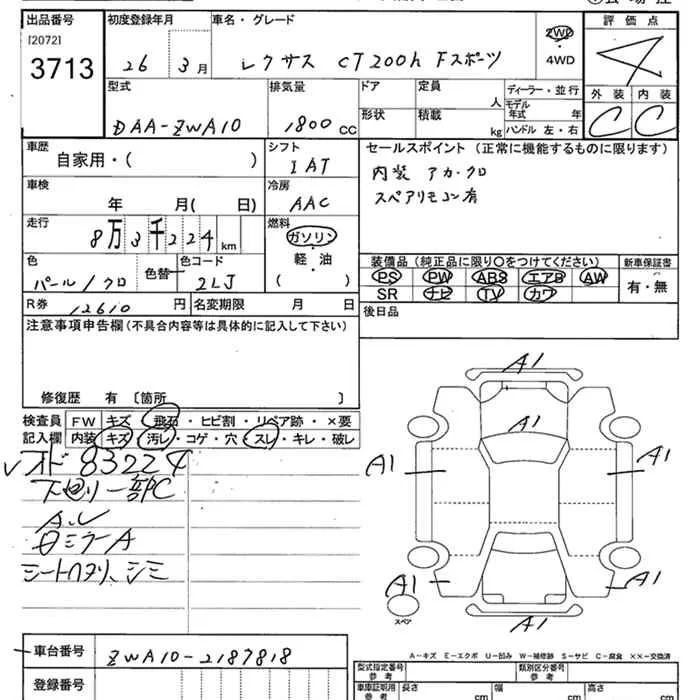 出品番号 初度登録年月 車名・グレード 評価点
[2072]
3713 26 3月 レクサス CT200h Fスポーツ 2WD・4WD 4
型式 排気量 ドア 定員 人 ディーラー・並行 外装 内装
DAA-ZWA10 1800cc 形状 積載 kg モデル年式 年 ハンドル 左・右 C C
車歴 自家用・( ) シフト IAT セールスポイント (正常に機能するものに限ります)
車検 年 月( 日) 冷房 AAC 内装 アカ・クロ
スペアリモコン有
走行 8万3千224km 燃料 ガソリン 軽・油 ( )
色 パール/クロ 色替 色コード 2LJ
装備品 (純正品に限り○をつけてください) 新車保証書
PS PW ABS エアB AW 有・無
SR ナビ TV カワ
R券 12610円 名変期限 月 日 後日品
注意事項申告欄 (不具合内容等は具体的に記入して下さい)
修復歴 有 〔箇所 〕
検査員 FW キズ・飛石・ヒビ割・リペア跡・×要
記入欄 内装 キズ・汚レ・コゲ・穴・スレ・キレ・破レ
オド 83224
下回リ一部C
シートヘタリ、シミ
A1
A1
A1 A1
A1 A1
A1
スペア
A-キズ E-エクボ U-凹み W-補修跡 S-サビ C-腐食 ××-交換済
車台番号 ZWA10-2187818
登録番号
型式指定番号 参考 類別区分番号 参考
車庫証明用 参考 長さ cm 幅 cm 高さ cm